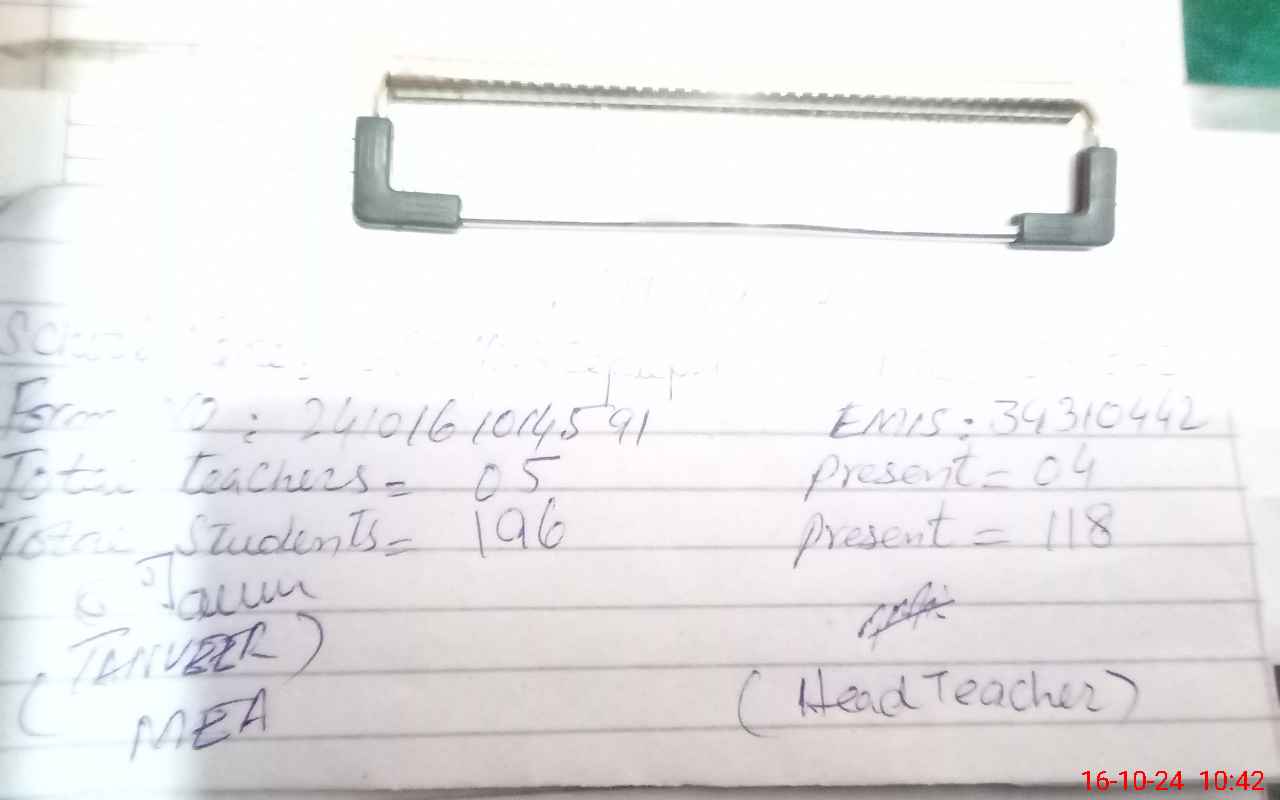 Form No : 2410161014591 EMIS : 34310442
Total teachers = 05 present = 04
Total Students = 196 present = 118
(TANVEER)
MEA
(Head Teacher)
16-10-24 10:42